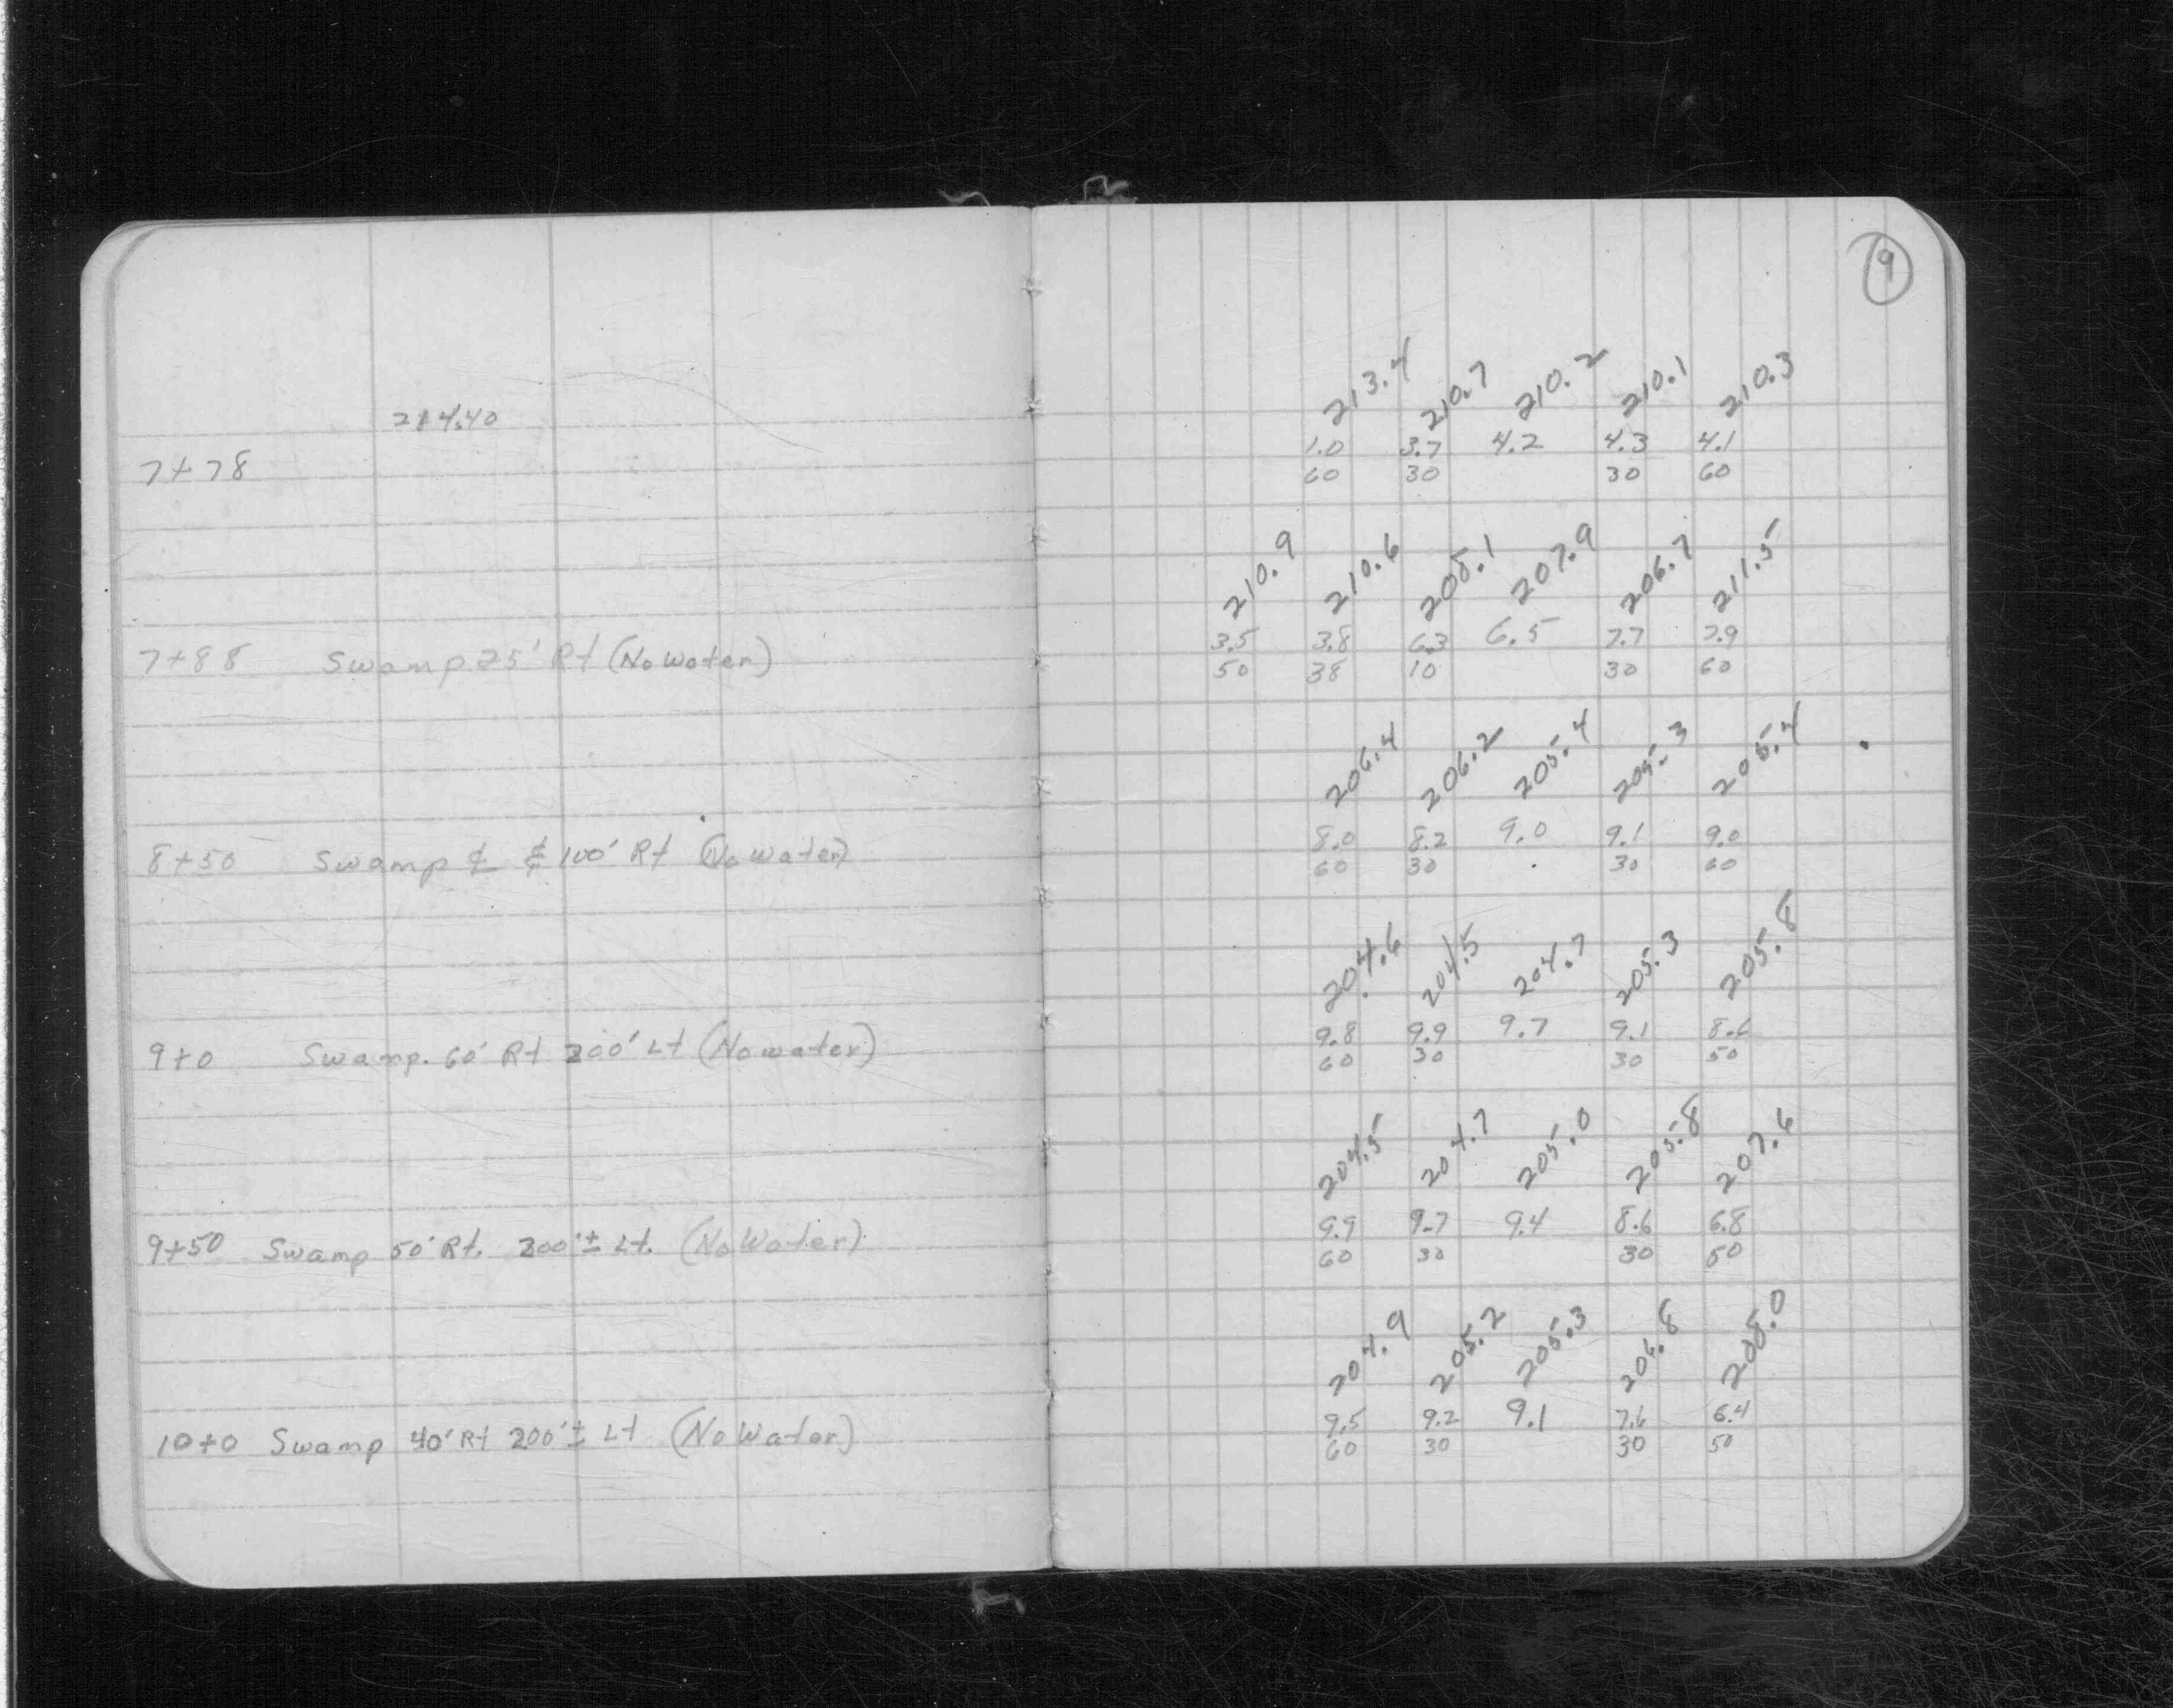 9
214.40
213.4 210.7 210.2 210.1 210.3
1.0 3.7 4.2 4.3 4.1
7+78
60 30 30 60
210.9 210.6 208.1 207.9 206.7 211.5
3.5 3.8 6.3 6.5 7.7 2.9
7+88 Swamp 25' Rt (No water)
50 38 10 30 60
206.4 206.2 205.4 205.3 205.4
8.0 8.2 9.0 9.1 9.0
8+50 Swamp ℄ & 100' Rt (No water)
60 30 30 60
204.6 204.5 204.7 205.3 205.8
9.8 9.9 9.7 9.1 8.6
9+0 Swamp. 60' Rt 200' Lt (No water)
60 30 30 50
204.5 204.7 205.0 205.8 207.6
9.9 9.7 9.4 8.6 6.8
9+50 Swamp 50' Rt. 200'± Lt. (No Water)
60 30 30 50
204.9 205.2 205.3 206.8 208.0
9.5 9.2 9.1 7.6 6.4
10+0 Swamp 40' Rt 200'± Lt (No Water)
60 30 30 50